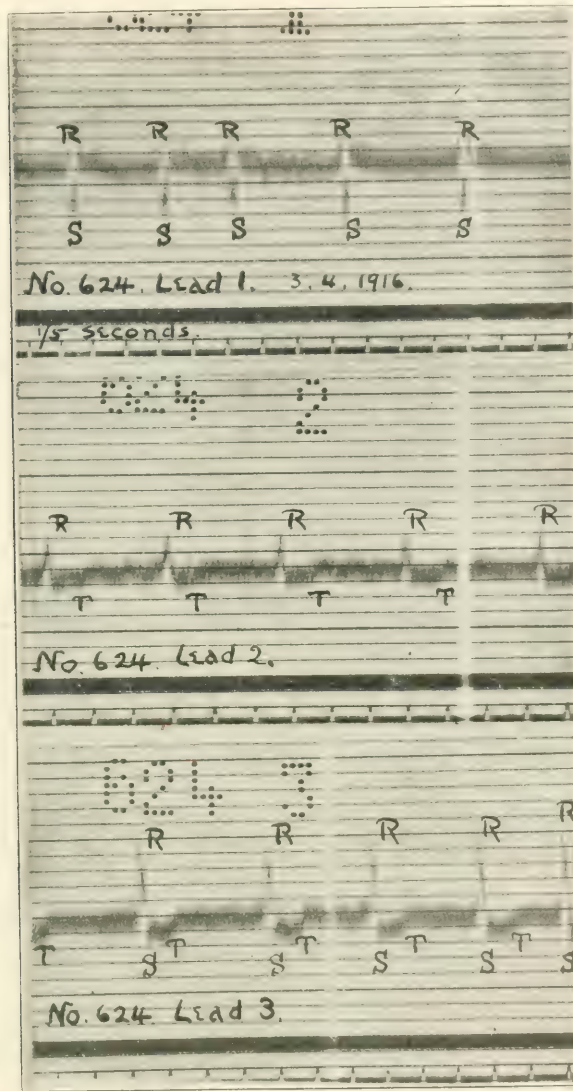 R R R R R
S S S S S
No. 624. Lead 1. 3. 4. 1916.
1/5 seconds.
624 2
R R R R R
T T T T
No. 624. Lead 2.
624 3
R R R R R
T S T S T S T S T S
No. 624. Lead 3.